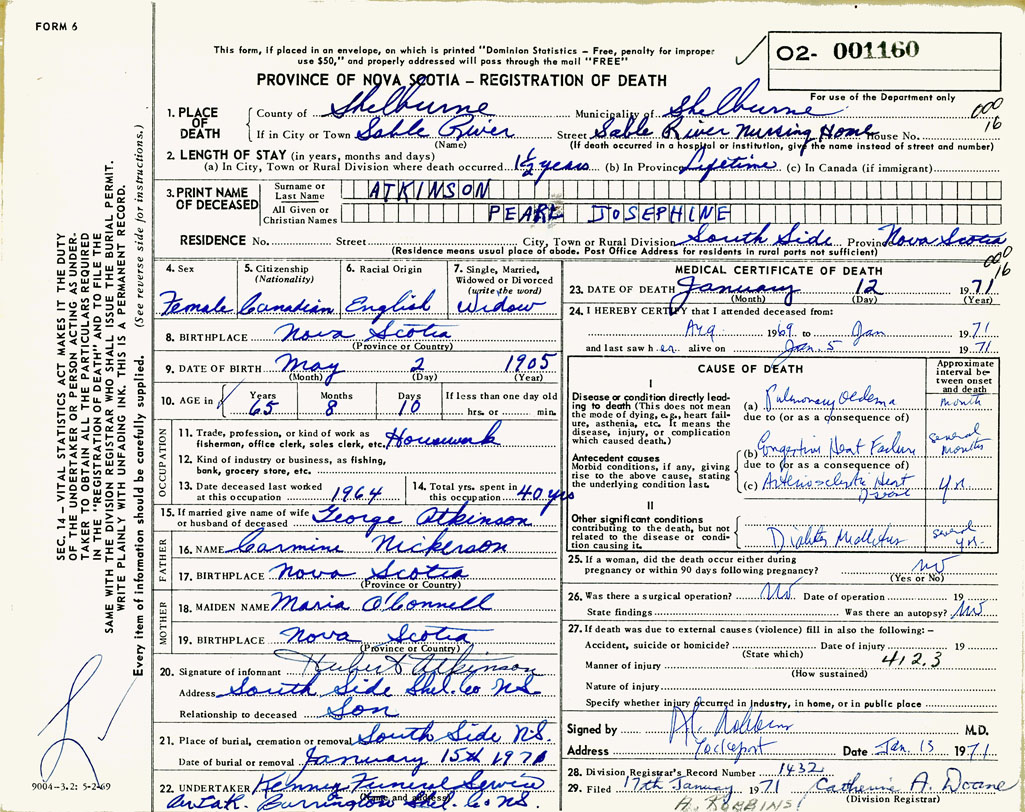 FORM 6
This form, if placed in an envelope, on which is printed "Dominion Statistics – Free, penalty for improper
use $50," and properly addressed will pass through the mail "FREE"
O2- 001160
For use of the Department only
PROVINCE OF NOVA SCOTIA – REGISTRATION OF DEATH
000
16
1. PLACE OF DEATH
County of Shelburne Municipality of Shelburne
If in City or Town Sable River Street Sable River Nursing Home House No.
(Name) (If death occurred in a hospital or institution, give the name instead of street and number)
2. LENGTH OF STAY (in years, months and days)
(a) In City, Town or Rural Division where death occurred 1½ years (b) In Province Lifetime (c) In Canada (if immigrant)
3. PRINT NAME OF DECEASED
Surname or Last Name ATKINSON
All Given or Christian Names PEARL JOSEPHINE
RESIDENCE No. Street City, Town or Rural Division South Side Province Nova Scotia
(Residence means usual place of abode. Post Office Address for residents in rural ports not sufficient)
000
16
SEC. 14 – VITAL STATISTICS ACT MAKES IT THE DUTY
OF THE UNDERTAKER OR PERSON ACTING AS UNDER-
TAKER TO OBTAIN ALL THE PARTICULARS REQUIRED
IN THE "REGISTRATION OF DEATH" AND TO FILE THE
SAME WITH THE DIVISION REGISTRAR WHO SHALL ISSUE THE BURIAL PERMIT.
WRITE PLAINLY WITH UNFADING INK. THIS IS A PERMANENT RECORD.
Every item of information should be carefully supplied. (See reverse side for instructions.)
4. Sex
Female
5. Citizenship
(Nationality)
Canadian
6. Racial Origin
English
7. Single, Married,
Widowed or Divorced
(write the word)
Widow
8. BIRTHPLACE Nova Scotia
(Province or Country)
9. DATE OF BIRTH May 2 1905
(Month) (Day) (Year)
10. AGE in Years Months Days If less than one day old
65 8 10 hrs. or min.
OCCUPATION
11. Trade, profession, or kind of work as
fisherman, office clerk, sales clerk, etc. Housework
12. Kind of industry or business, as fishing,
bank, grocery store, etc.
13. Date deceased last worked
at this occupation 1964
14. Total yrs. spent in
this occupation 40 yrs
15. If married give name of wife
or husband of deceased George Atkinson
FATHER
16. NAME Carmine Nickerson
17. BIRTHPLACE Nova Scotia
(Province or Country)
MOTHER
18. MAIDEN NAME Maria O'Connell
19. BIRTHPLACE Nova Scotia
(Province or Country)
20. Signature of informant Hubert Atkinson
Address South Side Shel. Co N.S.
Relationship to deceased Son
21. Place of burial, cremation or removal South Side N.S.
Date of burial or removal January 15th 1971
22. UNDERTAKER Kenny Funeral Service
(Name and address)
Barrington Shel. Co N.S.
9004-3.2: 5-2-69
MEDICAL CERTIFICATE OF DEATH
23. DATE OF DEATH January 12 1971
(Month) (Day) (Year)
24. I HEREBY CERTIFY that I attended deceased from:
Aug 1969 to Jan 1971
and last saw her alive on Jan. 5 1971
CAUSE OF DEATH
Approximate
interval be-
tween onset
and death
I
Disease or condition directly lead-
ing to death (This does not mean
the mode of dying, e.g., heart fail-
ure, asthenia, etc. It means the
disease, injury, or complication
which caused death.)
(a) Pulmonary Oedema month
due to (or as a consequence of)
Antecedent causes
Morbid conditions, if any, giving
rise to the above cause, stating
the underlying condition last.
(b) Congestive Heart Failure several months
due to (or as a consequence of)
(c) Arteriosclerotic Heart Disease yr.
II
Other significant conditions
contributing to the death, but not
related to the disease or condi-
tion causing it.
Diabetes Mellitus several yr.
25. If a woman, did the death occur either during
pregnancy or within 90 days following pregnancy? No
(Yes or No)
26. Was there a surgical operation? No Date of operation 19
State findings Was there an autopsy? No
27. If death was due to external causes (violence) fill in also the following: –
Accident, suicide or homicide? Date of injury 19
(State which)
Manner of injury 412.3
(How sustained)
Nature of injury
Specify whether injury occurred in Industry, in home, or in public place
Signed by M.D.
Address Lockeport Date Jan. 13 1971
28. Division Registrar's Record Number 1432
29. Filed 17th January 1971 Catherine A. Doane
(Division Registrar)
A. ROBBINS!